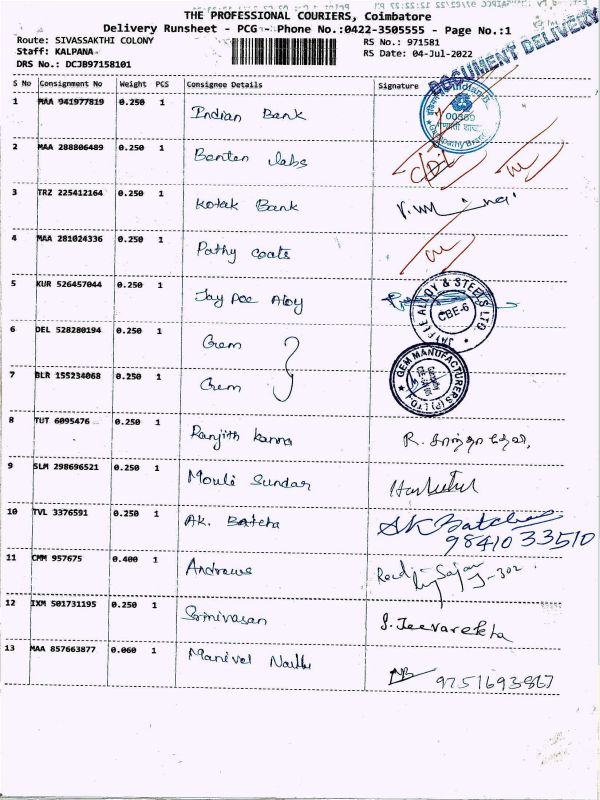 THE PROFESSIONAL COURIERS, Coimbatore
Delivery Runsheet - PCG - Phone No.:0422-3505555 - Page No.:1
Route: SIVASSAKTHI COLONY
RS No.: 971581
Staff: KALPANA
RS Date: 04-Jul-2022
DRS No.: DCJB97158101
DOCUMENT DELIVERY
S No Consignment No Weight PCS Consignee Details Signature
1 MAA 941977819 0.250 1 Indian Bank
00389
2 MAA 288806489 0.250 1 Benten Labs
3 TRZ 225412164 0.250 1 Kotak Bank
4 MAA 281024336 0.250 1 Pathy Coats
5 KUR 526457044 0.250 1 Jay Pee Aloy
JAYPEE ALLOY & STEELS LTD
CBE-6
6 DEL 528280194 0.250 1 Gem
7 BLR 155234068 0.250 1 Gem
GEM MANUFACTURERS (P) LTD
8 TUT 6095476 0.250 1 Ranjith Kanna R.
9 SLM 298696521 0.250 1 Mouli Sundar
10 TVL 3376591 0.250 1 AK. Batcha AK Batcha
9841033510
11 CMM 957675 0.400 1 Andrews
J-302
12 IXM 501731195 0.250 1 Srinivasan J. Jeevarekha
13 MAA 857663877 0.060 1 Manivel 9751693867